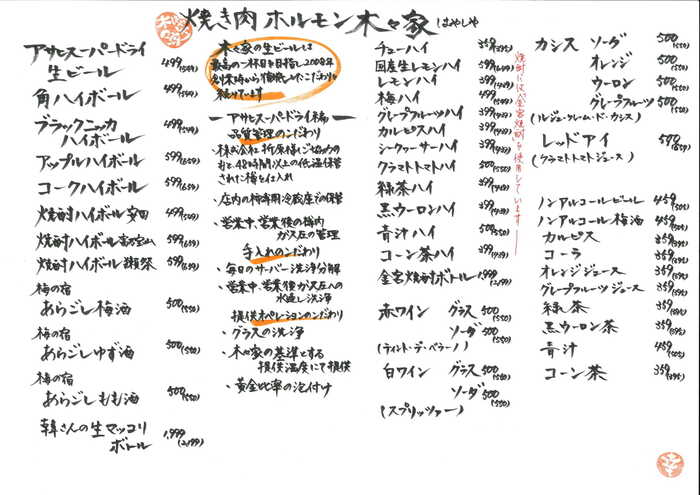 焼き肉 ホルモン 木々家 はやしや
アサヒスーパードライ
生ビール 499(549)
角ハイボール 499(549)
ブラックニッカ
ハイボール 499(549)
アップルハイボール 599(659)
コークハイボール 599(659)
焼酎ハイボール 安田 499(549)
焼酎ハイボール 富乃宝山 599(659)
焼酎ハイボール 599(659)
梅の宿
あらごし梅酒 500(550)
梅の宿
あらごしゆず酒 500(550)
梅の宿
あらごしもも酒 500(550)
韓さんの生マッコリ
ボトル 1,999(2,199)
木々家の生ビールは
最高の一杯目を目指し2008年
創業時から徹底したこだわりを
続けています
アサヒスーパードライ編
品質管理のこだわり
・株式会社折原様ご協力の
もと、48時間以上の低温保管
された樽を仕入れ
・店内の樽専用冷蔵庫での保管
・営業中、営業後の樽内
ガス圧の管理
手入れのこだわり
・毎日のサーバー洗浄分解
・営業中、営業後ガス圧への
水通し洗浄
提供オペレーションのこだわり
・グラスの洗浄
・木々家の基準とする
提供温度にて提供
・黄金比率の泡付け
チューハイ 359(395)
国産生レモンハイ 399(439)
レモンハイ 399(439)
梅ハイ 399(439)
グレープフルーツハイ 399(439)
カルピスハイ 399(439)
シークヮーサーハイ 399(439)
クラマトトマトハイ 500(550)
緑茶ハイ 399(439)
黒ウーロンハイ 399(439)
青汁ハイ 500(550)
コーン茶ハイ 399(439)
金宮焼酎ボトル 1,999(2,199)
焼酎には全て金宮焼酎を使用しています
赤ワイン グラス 500(550)
ソーダ 500(550)
(ティント・デ・ベラーノ)
白ワイン グラス 500(550)
ソーダ 500(550)
(スプリッツァー)
カシス ソーダ 500(550)
オレンジ 500(550)
ウーロン 500(550)
グレープフルーツ 500(550)
(ルジェ・クレーム・ド・カシス)
レッドアイ 599(659)
(クラマトトマトジュース)
ノンアルコールビール 459(505)
ノンアルコール梅酒 459(505)
カルピス 359(395)
コーラ 359(395)
オレンジジュース 359(395)
グレープフルーツジュース 359(395)
緑茶 359(395)
黒ウーロン茶 359(395)
青汁 459(505)
コーン茶 359(395)